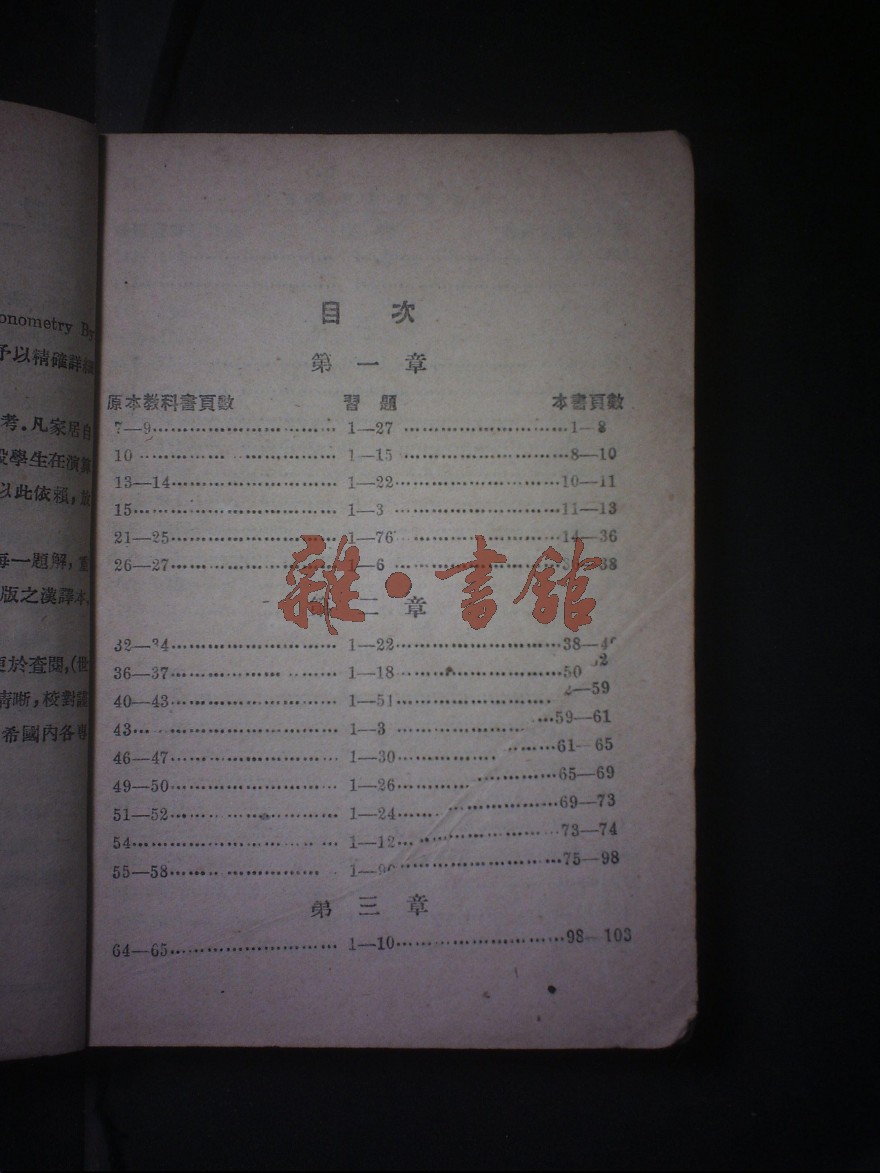 onometry By
予以精確詳細
考．凡家居自
學生在演算
以此依賴，
每一題解，重
版之漢譯本，
更於查閱，(世
清晰，校對謹
希國內各專
目 次
第 一 章
原本教科書頁數 習 題 本書頁數
7—9 1—27 1—8
10 1—15 8—10
13—14 1—22 10—11
15 1—3 11—13
21—25 1—76 14—36
26—27 1—6 38
雜·書館
二 章
32—34 1—22 38—
36—37 1—18 50
40—43 1—51 —59
43 1—3 59—61
46—47 1—30 61—65
49—50 1—26 65—69
51—52 1—24 69—73
54 1—12 73—74
55—58 1— 75—98
第 三 章
64—65 1—10 98—103